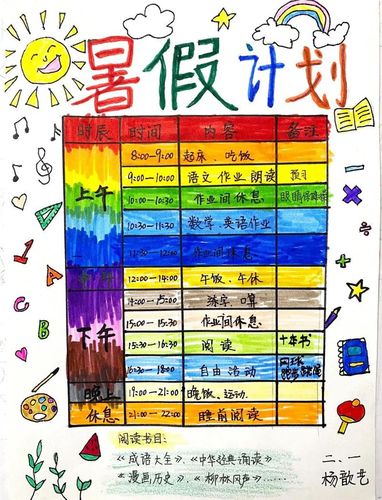 暑假计划
时辰 时间 内容 备注
8:00—9:00 起床、吃饭
9:00—10:00 语文作业 朗读 预习
上午 10:00—10:30 作业间休息
10:30—11:30 数学、英语作业
11:30—12:00 作业间休息
12:00—14:00 午饭、午休
14:00—15:00 练字、口算
下午 15:00—15:30 作业间休息
15:30—16:30 阅读 十本书
16:30—18:00 自由活动
晚上 19:00—21:00 晚饭、运动
休息 21:00—22:00 睡前阅读
阅读书目:
《成语大全》、《中华经典诵读》
《漫画历史》、《柳林风声》……
二、一
1
A
C
B